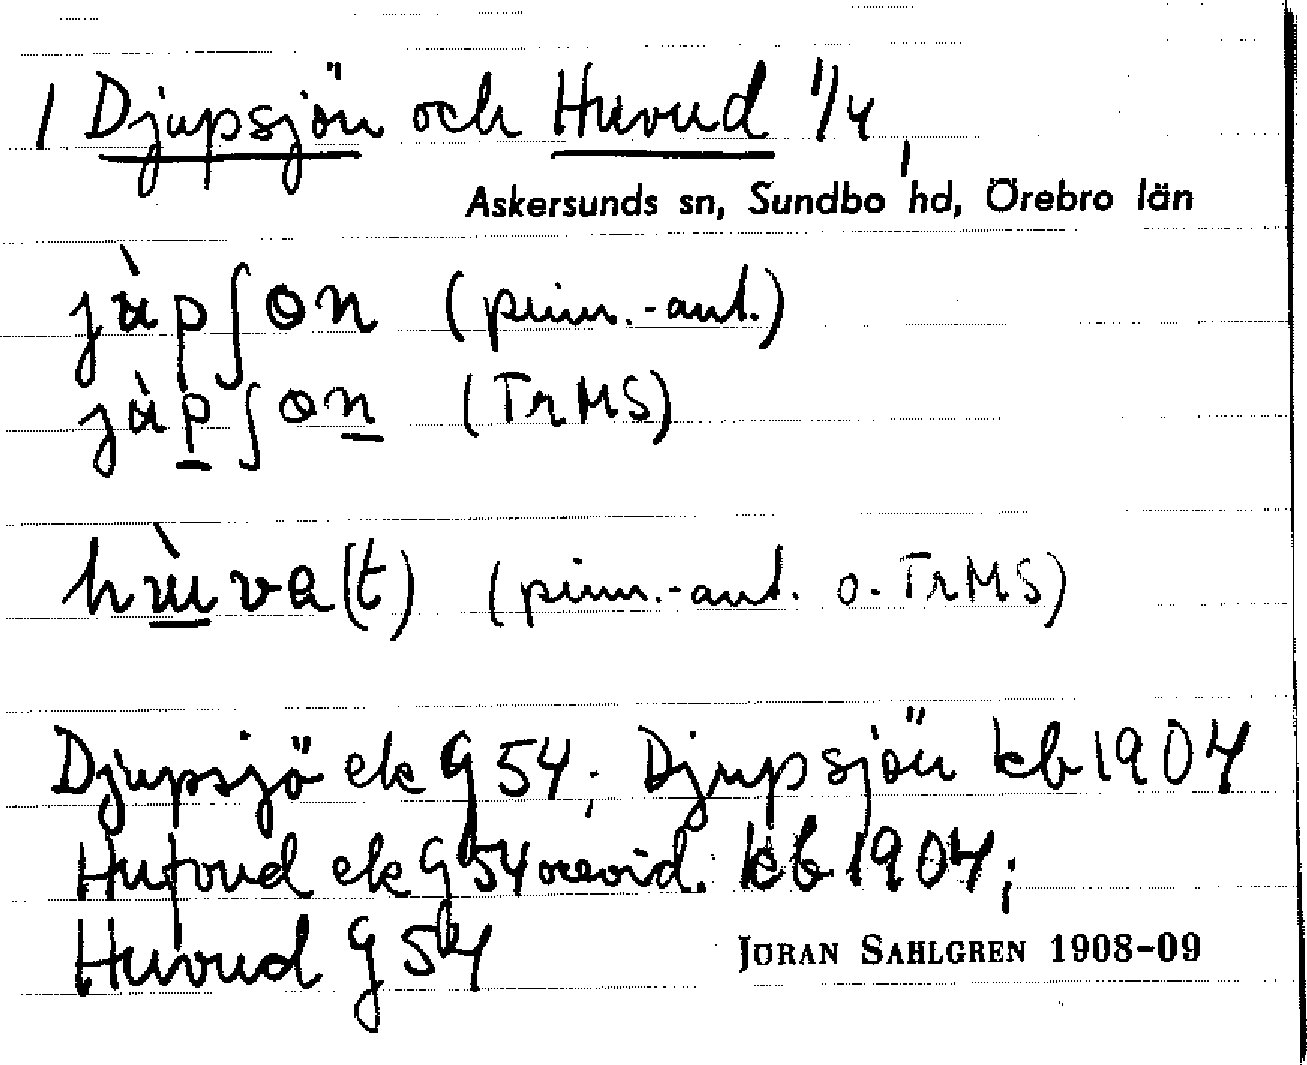 / Djupsjön och Huvud 1/4
Askersunds sn, Sundbo hd, Örebro län
jùpʃɵn (pinn.-ant.)
jùpʃɵn (TrMS)
hùva(t) (pinn.-ant. o. TrMS)
Djupsjö ek G 54; Djupsjön kb 1904
Hufvud ek G 54 kb 1904;
Huvud G 54
JÖRAN SAHLGREN 1908-09